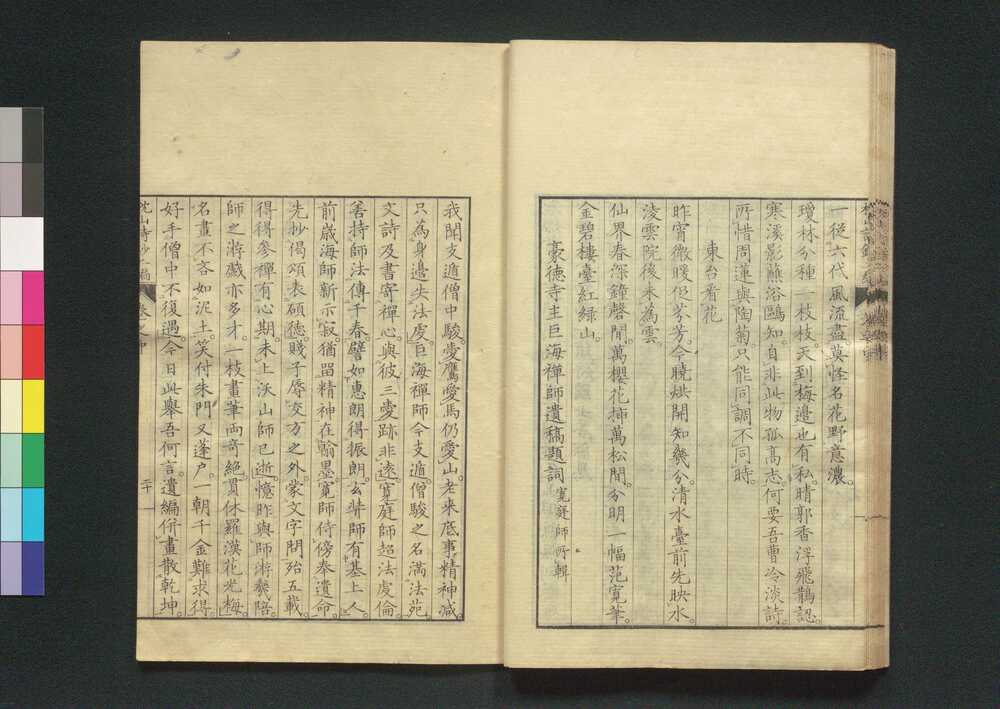 一径六代風流盡莫怪名花野意濃。
瓊林分種一枝枝。天到梅邊也有私。晴郭香浮飛鵲認。
寒溪影蘸浴鷗知。自非此物孤高志何要吾曹冷淡詩。
所惜周蓮與陶菊只能同調不同時。
東台看花
昨宵微暖促芬芳。今曉烘開知幾分。清水臺前先映水。
凌雲院後未為雲。
仙界春深鐘磬閒。萬櫻花挿萬松間。分明一幅范寬筆。
金碧樓臺紅綠山。
豪德寺主巨海禪師遺稿題詞寛庭師所輯
我聞支遁僧中駿愛鷹愛馬仍愛山。老来底事精神減。
只為身邊失法虔。巨海禪師今支遁。僧駿之名滿法苑。
文詩及書寄禪心。與彼三愛跡非遠。寛庭師超法虔倫。
善持師法傳千春。譬如惠朗得振朗。玄弉師有基上人。
前歲海師新示寂。猶留精神在翰墨。寛師侍傍奉遺命。
先抄偈頌表碩德。賤子辱交方之外。蒙文字問殆五載。
得得參禪有心期。未上沃山師已逝。憶昨與師游幾陪。
師之游蔵亦多才。一枝畫筆両奇絕。貫休羅漢花光梅。
名畫不吝如泥土。笑付朱門又蓬户。一朝千金難求得。
好手僧中不復遇。今日此舉吾何言。遺編併畫散乾坤
枕山詩鈔 卷之中 二十一